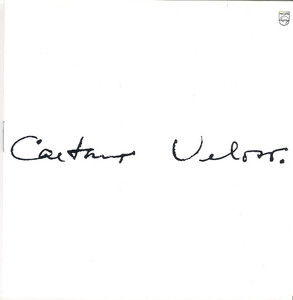 Caetano Veloso.